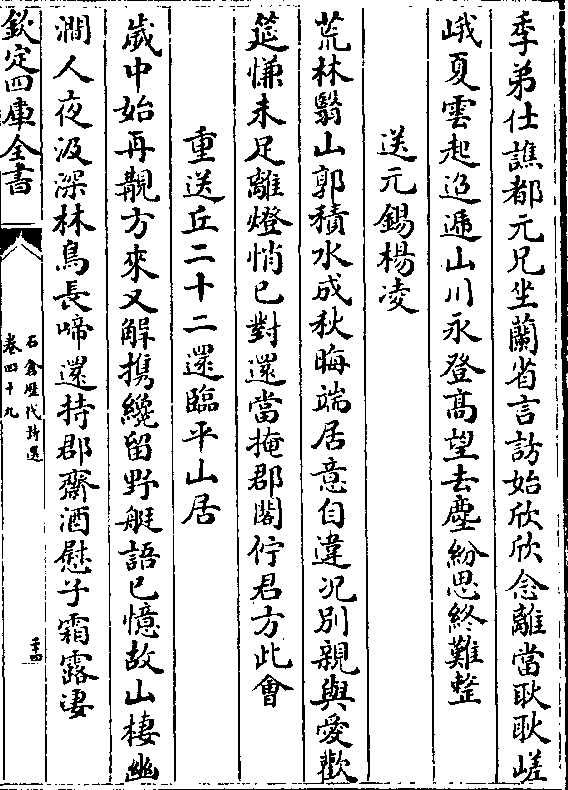 季弟仕譙都元兄坐蘭省言訪始欣欣念離當耿耿嵯
峨夏雲起迢遞山川永登髙望去塵紛思終難整
送元錫楊凌
荒林翳山郭積水成秋晦端居意自違况別親與愛歡
筵慊未足離燈悄已對還當掩郡閣佇君方此會
重送丘二十二還臨平山居
嵗中始再覯方來又解携纔留野艇語已憶故山棲幽
澗人夜汲深林鳥長啼還持郡齋酒慰子霜露淒
欽定四庫全書
石倉歴代詩選
卷四十九
二十四